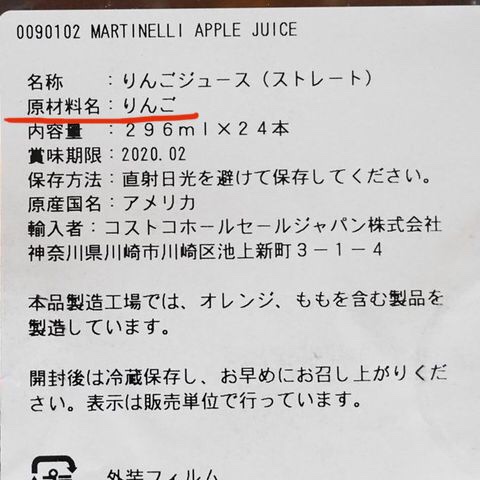 0090102 MARTINELLI APPLE JUICE
名称　　：りんごジュース（ストレート）
原材料名：りんご
内容量　：２９６ｍｌ×２４本
賞味期限：2020.02
保存方法：直射日光を避けて保存してください。
原産国名：アメリカ
輸入者：コストコホールセールジャパン株式会社
神奈川県川崎市川崎区池上新町３－１－４
本品製造工場では、オレンジ、ももを含む製品を
製造しています。
開封後は冷蔵保存し、お早めにお召し上がりくだ
さい。表示は販売単位で行っています。
プラ
外装フィルム